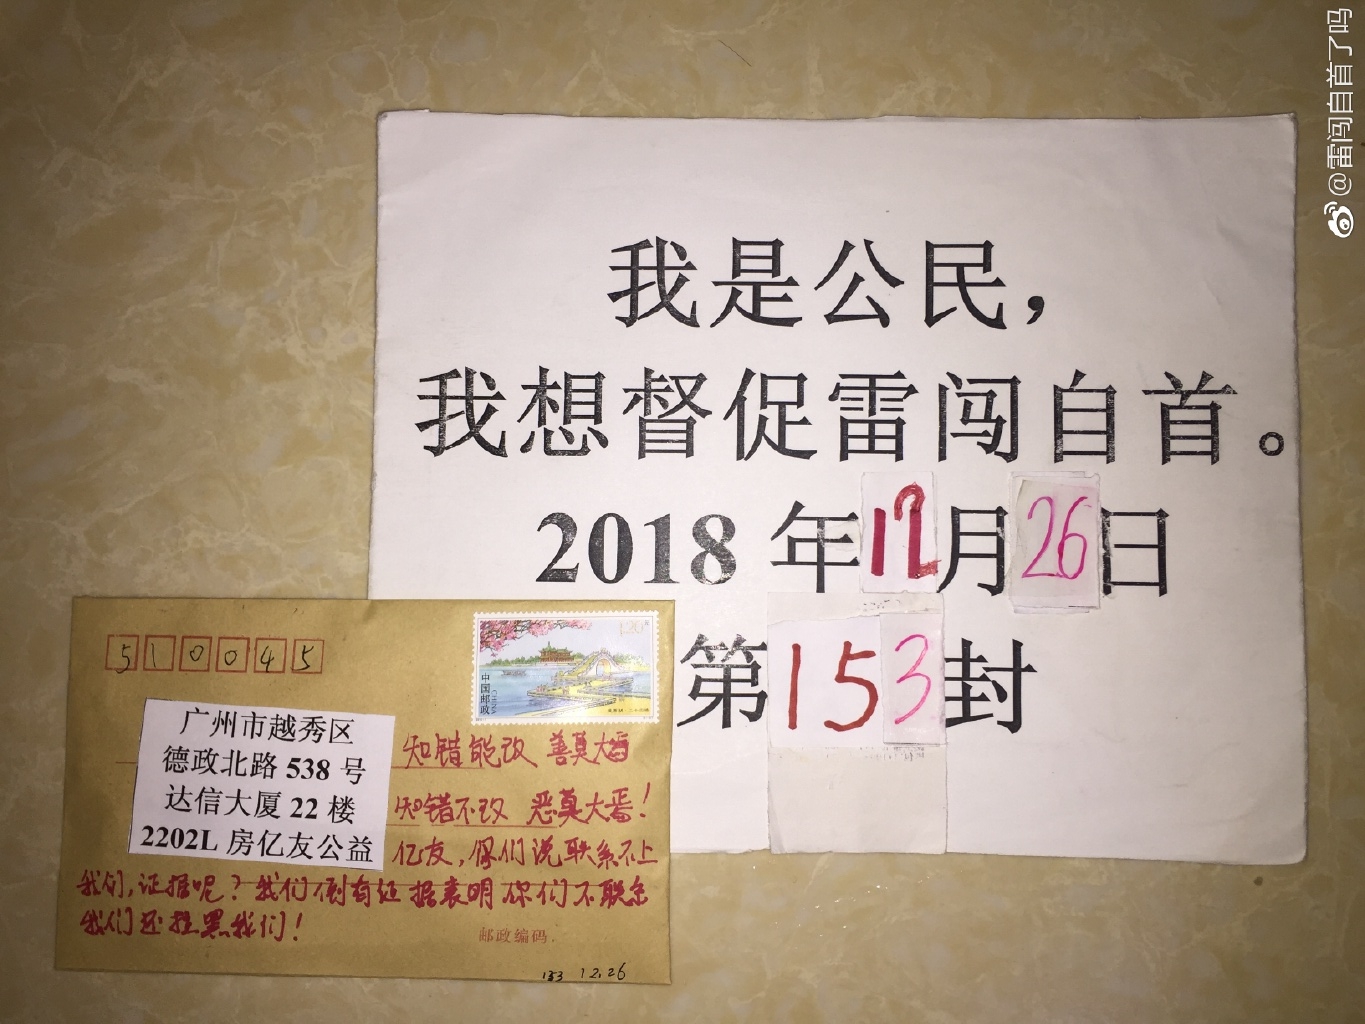 @雷闯自首了吗
我是公民，
我想督促雷闯自首。
2018 年12月26日
第153封
510045
1.20元
中国邮政
CHINA
广州市越秀区
德政北路 538 号
达信大厦 22 楼
2202L 房亿友公益
知错能改 善莫大焉
知错不改 恶莫大焉！
亿友，你们说联系不上
我们，证据呢？我们倒有证据表明你们不联系
我们还拉黑我们！
邮政编码
153 12.26